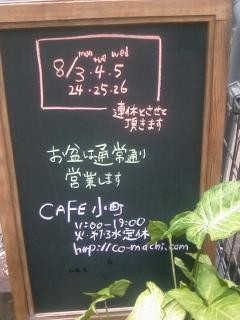 mon tue wed
8/3・4・5
24・25・26
連休とさせて
頂きます
お盆は通常通り
営業します
CAFE小町
11:00-19:00
火・第1.3水定休
http://co-machi.com